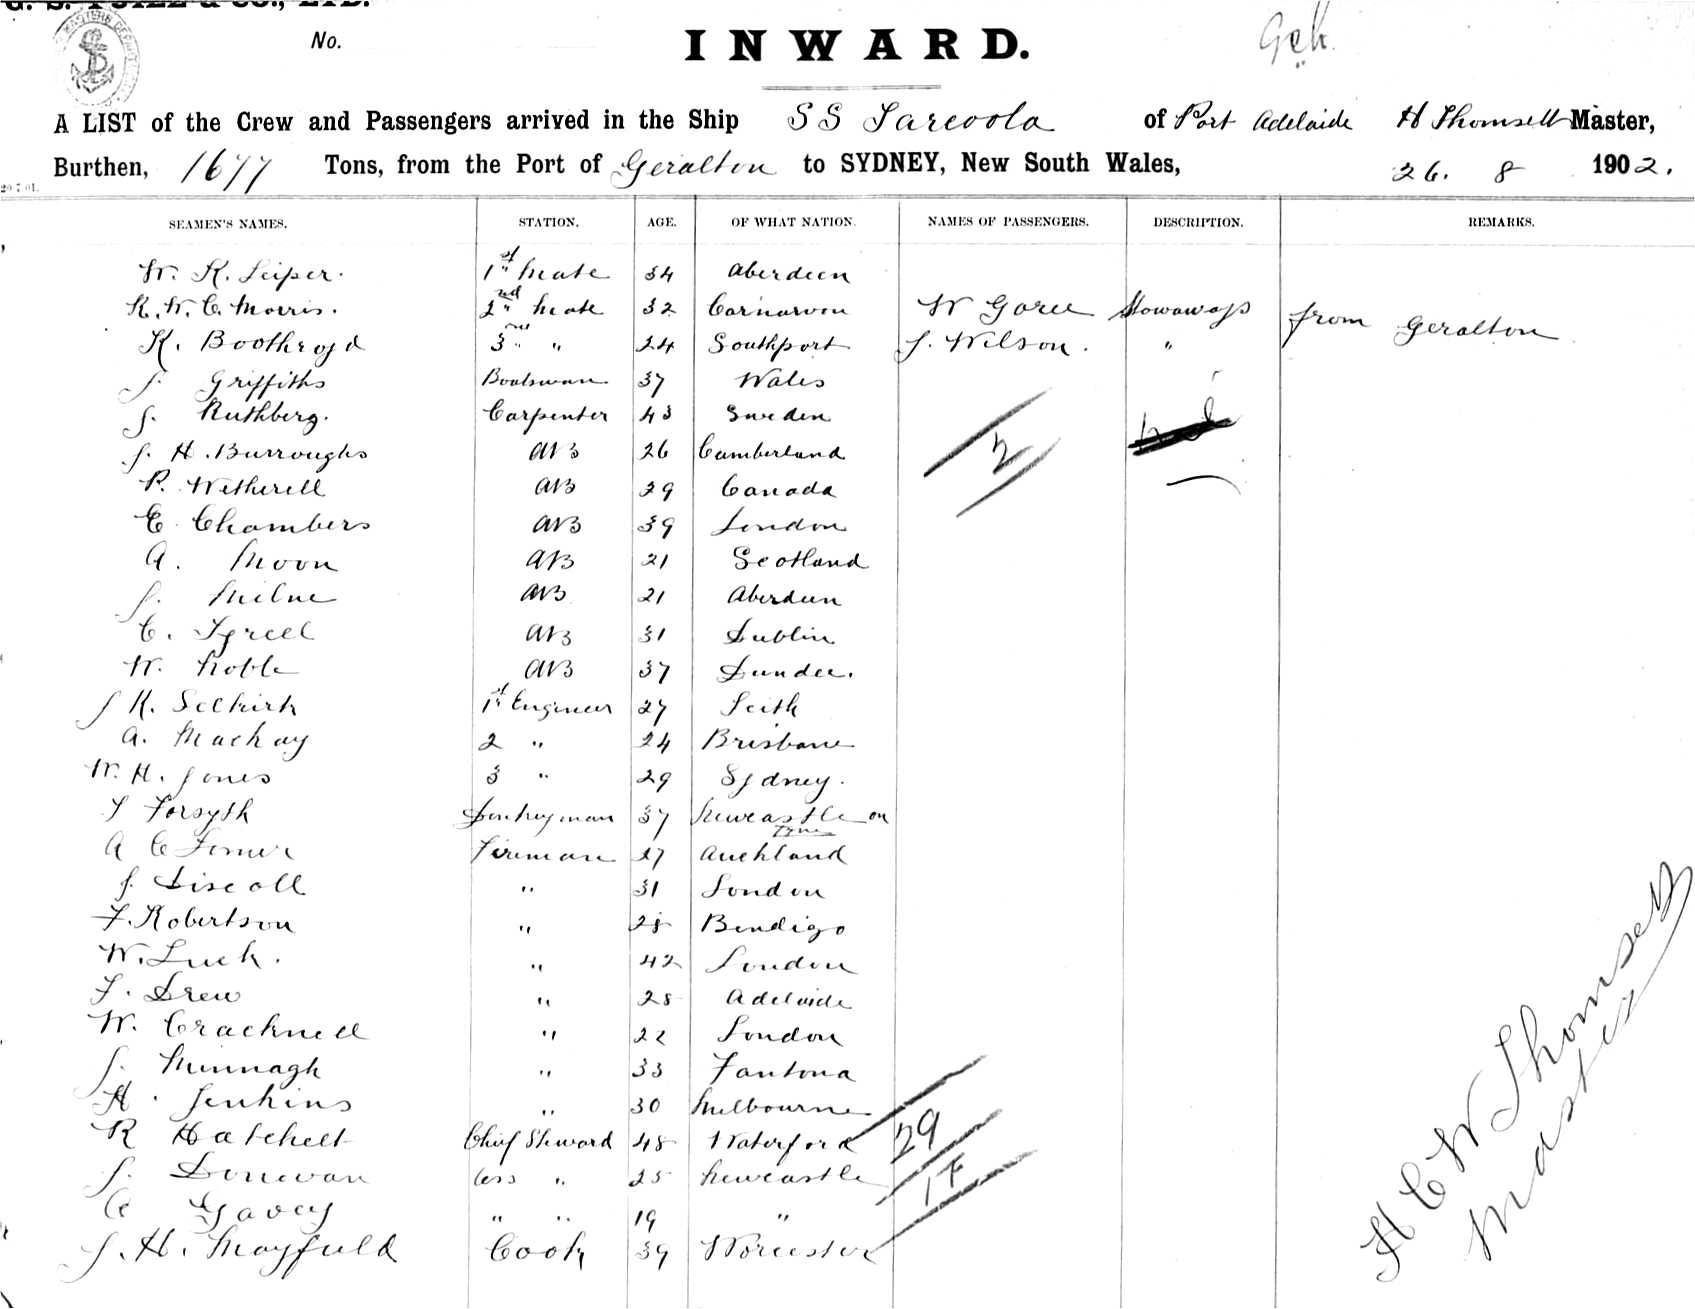 No.
INWARD.
Geh.
A LIST of the Crew and Passengers arrived in the Ship SS Tarcoola of Port Adelaide H Thomsett Master,
Burthen, 1677 Tons, from the Port of Geralton to SYDNEY, New South Wales, 26. 8 1902.
SEAMEN'S NAMES. STATION. AGE. OF WHAT NATION. NAMES OF PASSENGERS. DESCRIPTION. REMARKS.
W. R. Leiper. 1st Mate 34 Aberdeen
R. W. C. Morris. 2nd Mate 32 Carnarvon W Goree Stowaways from Geralton
K. Boothroyd 3rd " 24 Southport J. Wilson. "
J. Griffiths Boatswan 37 Wales
J. Ruthberg. Carpenter 43 Sweden
J. H. Burroughs AB 26 Cumberland 2
P. Wetherell AB 29 Canada
E. Chambers AB 39 London
A. Moon AB 21 Scotland
J. Milne AB 21 Aberdeen
C. Tyrell AB 31 Dublin
W. Noble AB 37 Dundee.
J K. Selkirk 1st Engineer 27 Leith
A. Mackay 2 " 24 Brisbane
W. H. Jones 3 " 29 Sydney.
T Forsyth Donkeyman 37 Newcastle on Tyne
A C Fireman 27 Auckland
J. Discoll " 31 London
F. Robertson " 28 Bendigo
W. Luck. " 42 London
F. Drew " 28 Adelaide
W. Cracknell " 22 London
J. Minnagh " 33 Fantona
H. Jenkins " 30 Melbourne
R Hatchett Chief Steward 48 Waterford 29
J. Donevan ass " 25 Newcastle 1 F
C Gavey " " 19 "
J. H. Mayfield Cook 39 Worcester
H C W Thomsett
Master